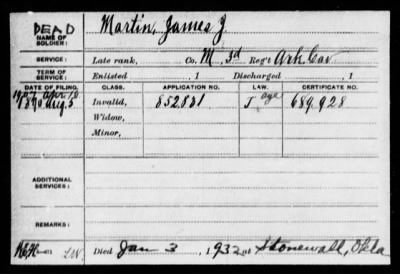 DEAD
NAME OF SOLDIER: Martin, James J.
SERVICE: Late rank, Co. M, 3d Reg't Ark Cav
TERM OF SERVICE: Enlisted , 1 Discharged , 1
DATE OF FILING. CLASS. APPLICATION NO. LAW. CERTIFICATE NO.
1907 Apr 10 age
1890 Aug 5 Invalid, 852831 J 689,928
Widow,
Minor,
ADDITIONAL SERVICES:
REMARKS:
Died Jan 3, 1932 at Stonewall, Okla